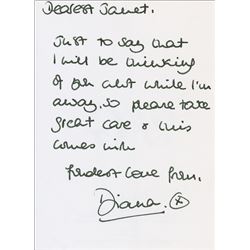 Dearest Janet.
Just to say that
I will be thinking
of you whilst while I'm
away. So please take
great care & this
comes with
fondest love from,
Diana. x